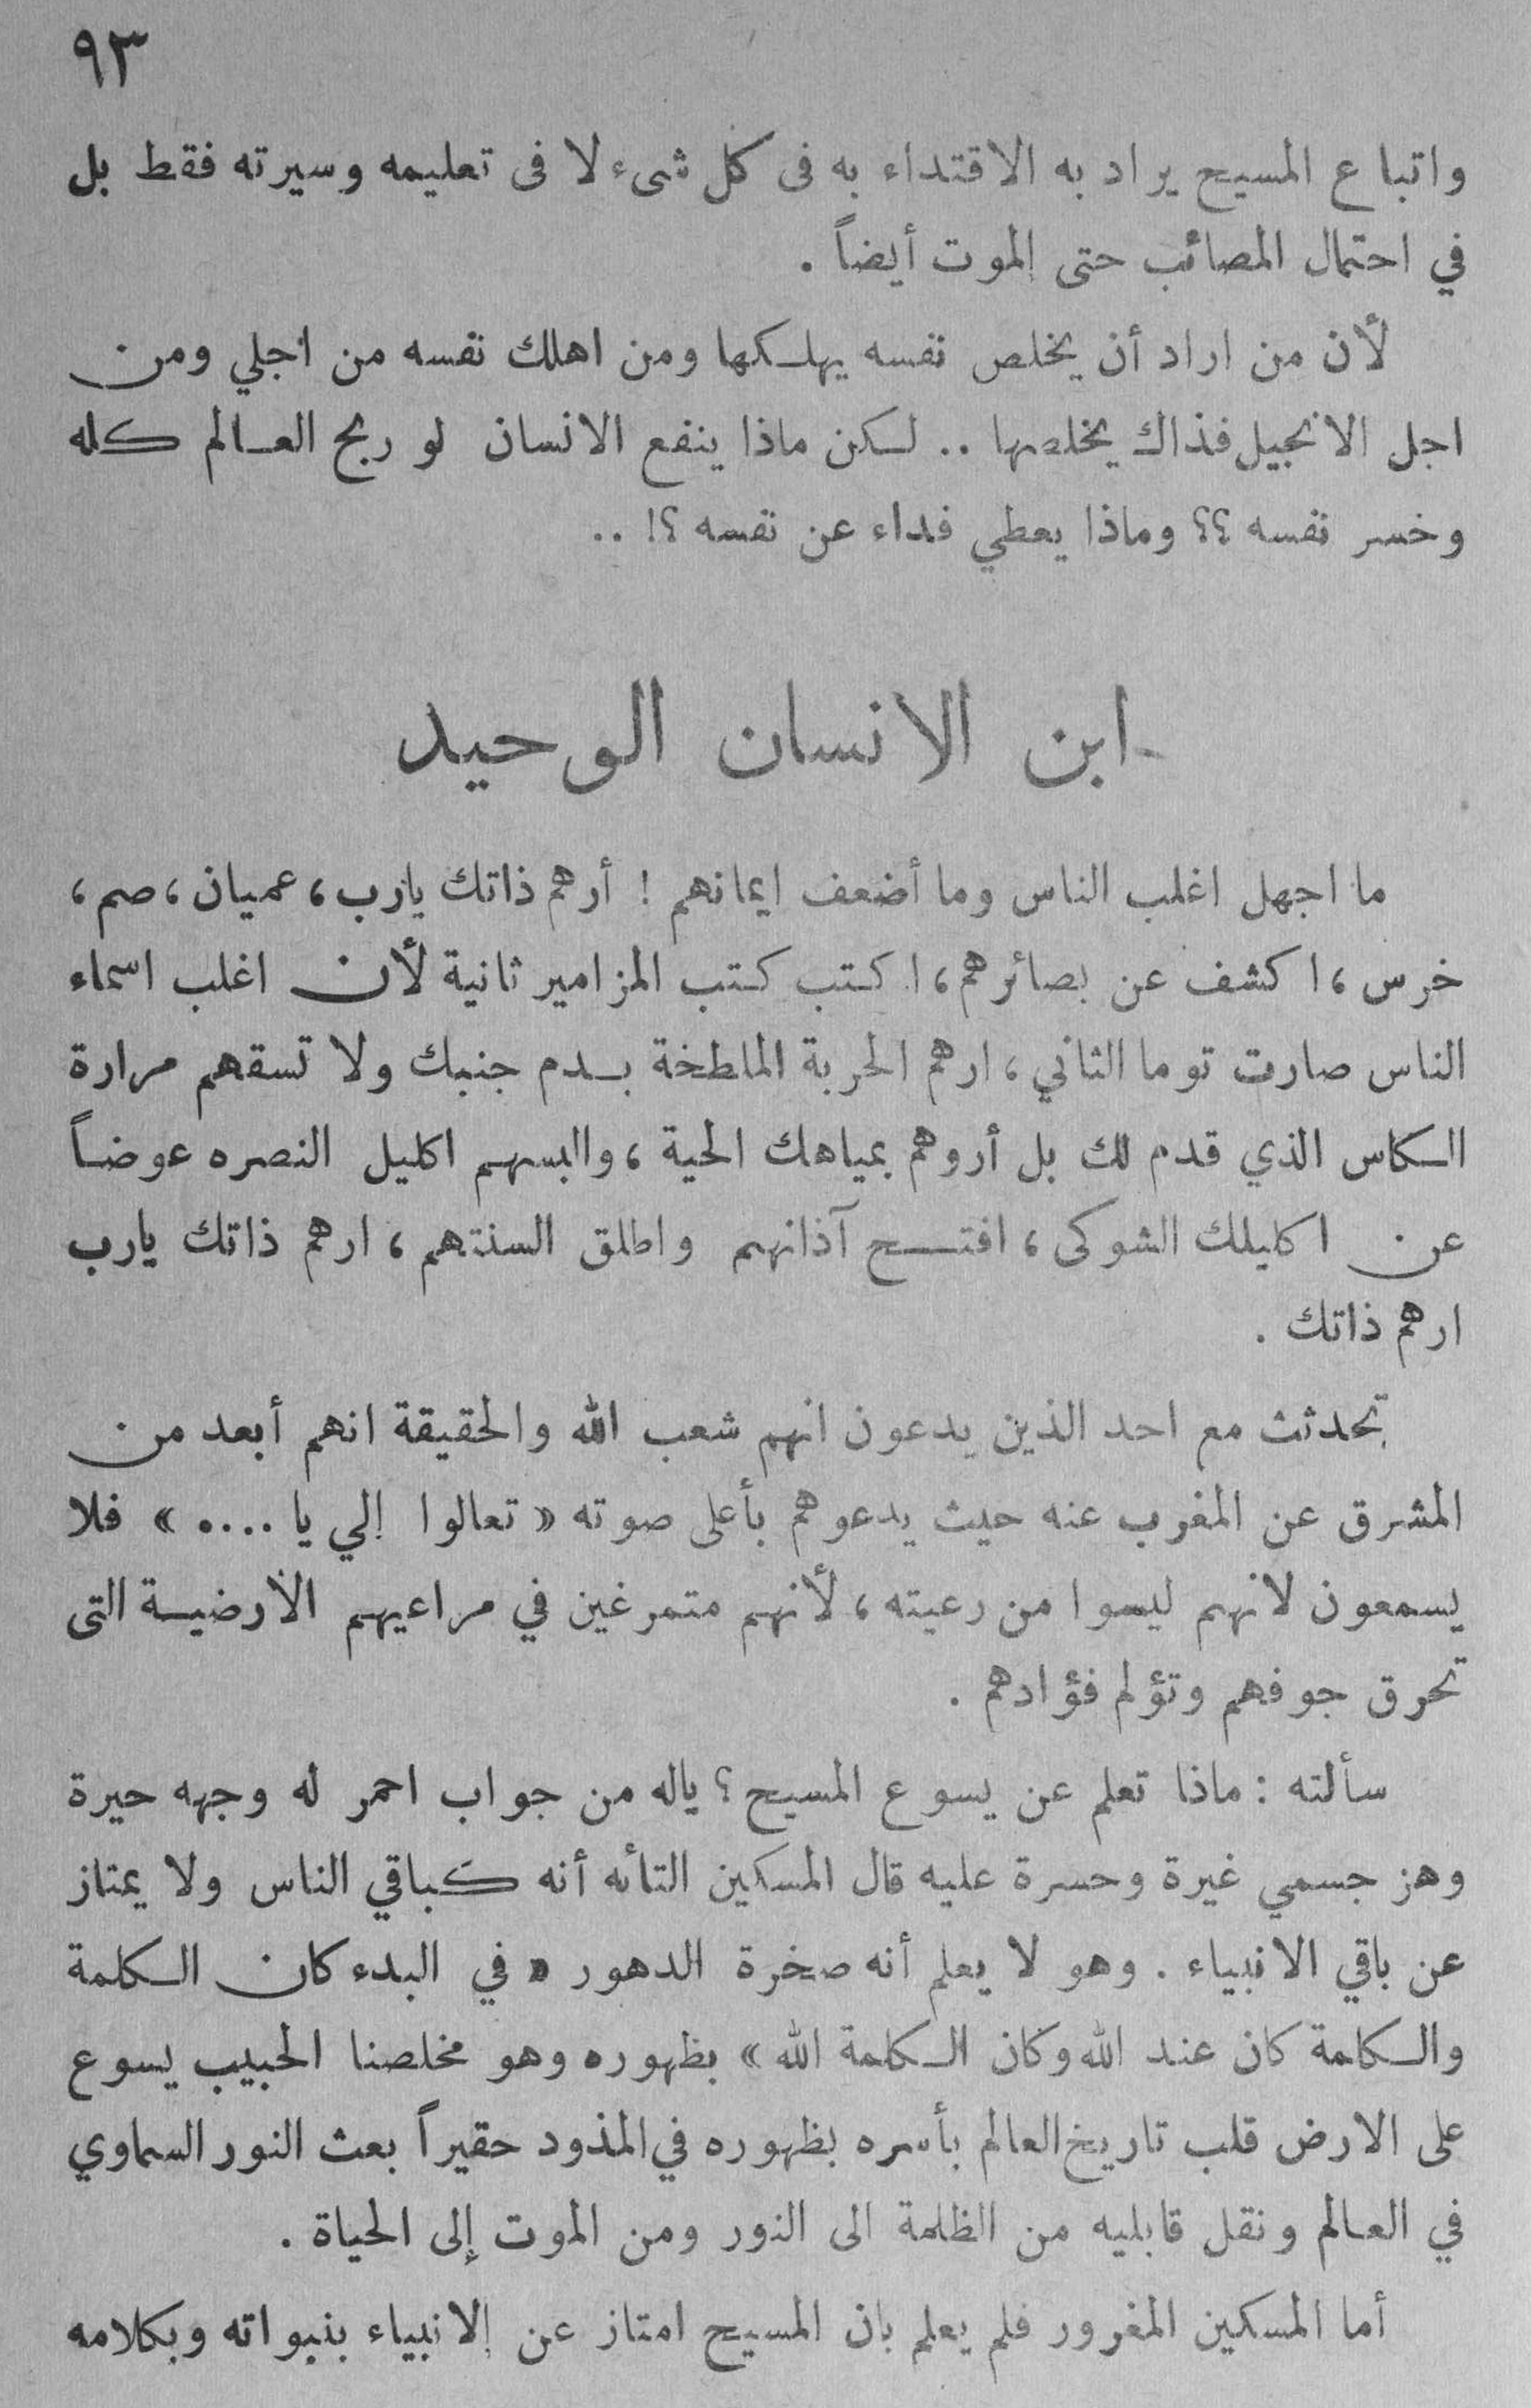 ٩٣
واتباع المسيح يراد به الاقتداء به فى كل شىء لا فى تعليمه وسيرته فقط بل
في احتمال المصائب حتى الموت أيضاً .
لأن من اراد أن يخلص نفسه يهلكها ومن اهلك نفسه من اجلي ومن
اجل الانجيل فذاك يخلصها .. لكن ماذا ينفع الانسان لو ربح العالم كله
وخسر نفسه ؟؟ وماذا يعطي فداء عن نفسه ؟! ..
ابن الانسان الوحيد
ما اجهل اغلب الناس وما أضعف ايمانهم ! أرهم ذاتك يارب ، عميان ، صم ،
خرس ، اكشف عن بصائرهم ، اكتب كتب المزامير ثانية لأن اغلب اسماء
الناس صارت توما الثاني ، ارهم الحربة الملطخة بدم جنبك ولا تسقهم مرارة
الكاس الذي قدم لك بل أروهم بمياهك الحية ، والبسهم اكليل النصره عوضاً
عن اكليلك الشوكى ، افتح آذانهم واطلق السنتهم ، ارهم ذاتك يارب
ارهم ذاتك .
تحدثت مع احد الذين يدعون انهم شعب الله والحقيقة انهم أبعد من
المشرق عن المغرب عنه حيث يدعوهم بأعلى صوته « تعالوا إلي يا .... » فلا
يسمعون لانهم ليسوا من رعيته ، لأنهم متمرغين في مراعيهم الأرضية التى
تحرق جوفهم وتؤلم فؤادهم .
سألته : ماذا تعلم عن يسوع المسيح ؟ ياله من جواب احمر له وجهه حيرة
وهز جسمي غيرة وحسرة عليه قال المسكين التائه أنه كباقي الناس ولا يمتاز
عن باقي الانبياء . وهو لا يعلم أنه صخرة الدهور « في البدء كان الكلمة
والكلمة كان عند الله وكان الكلمة الله » بظهوره وهو مخلصنا الحبيب يسوع
على الارض قلب تاريخ العالم بأسره بظهوره في المذود حقيراً بعث النور السماوي
في العالم ونقل قابليه من الظلمة الى النور ومن الموت إلى الحياة .
أما المسكين المغرور فلم يعلم بان المسيح امتاز عن الانبياء بنبواته وبكلامه